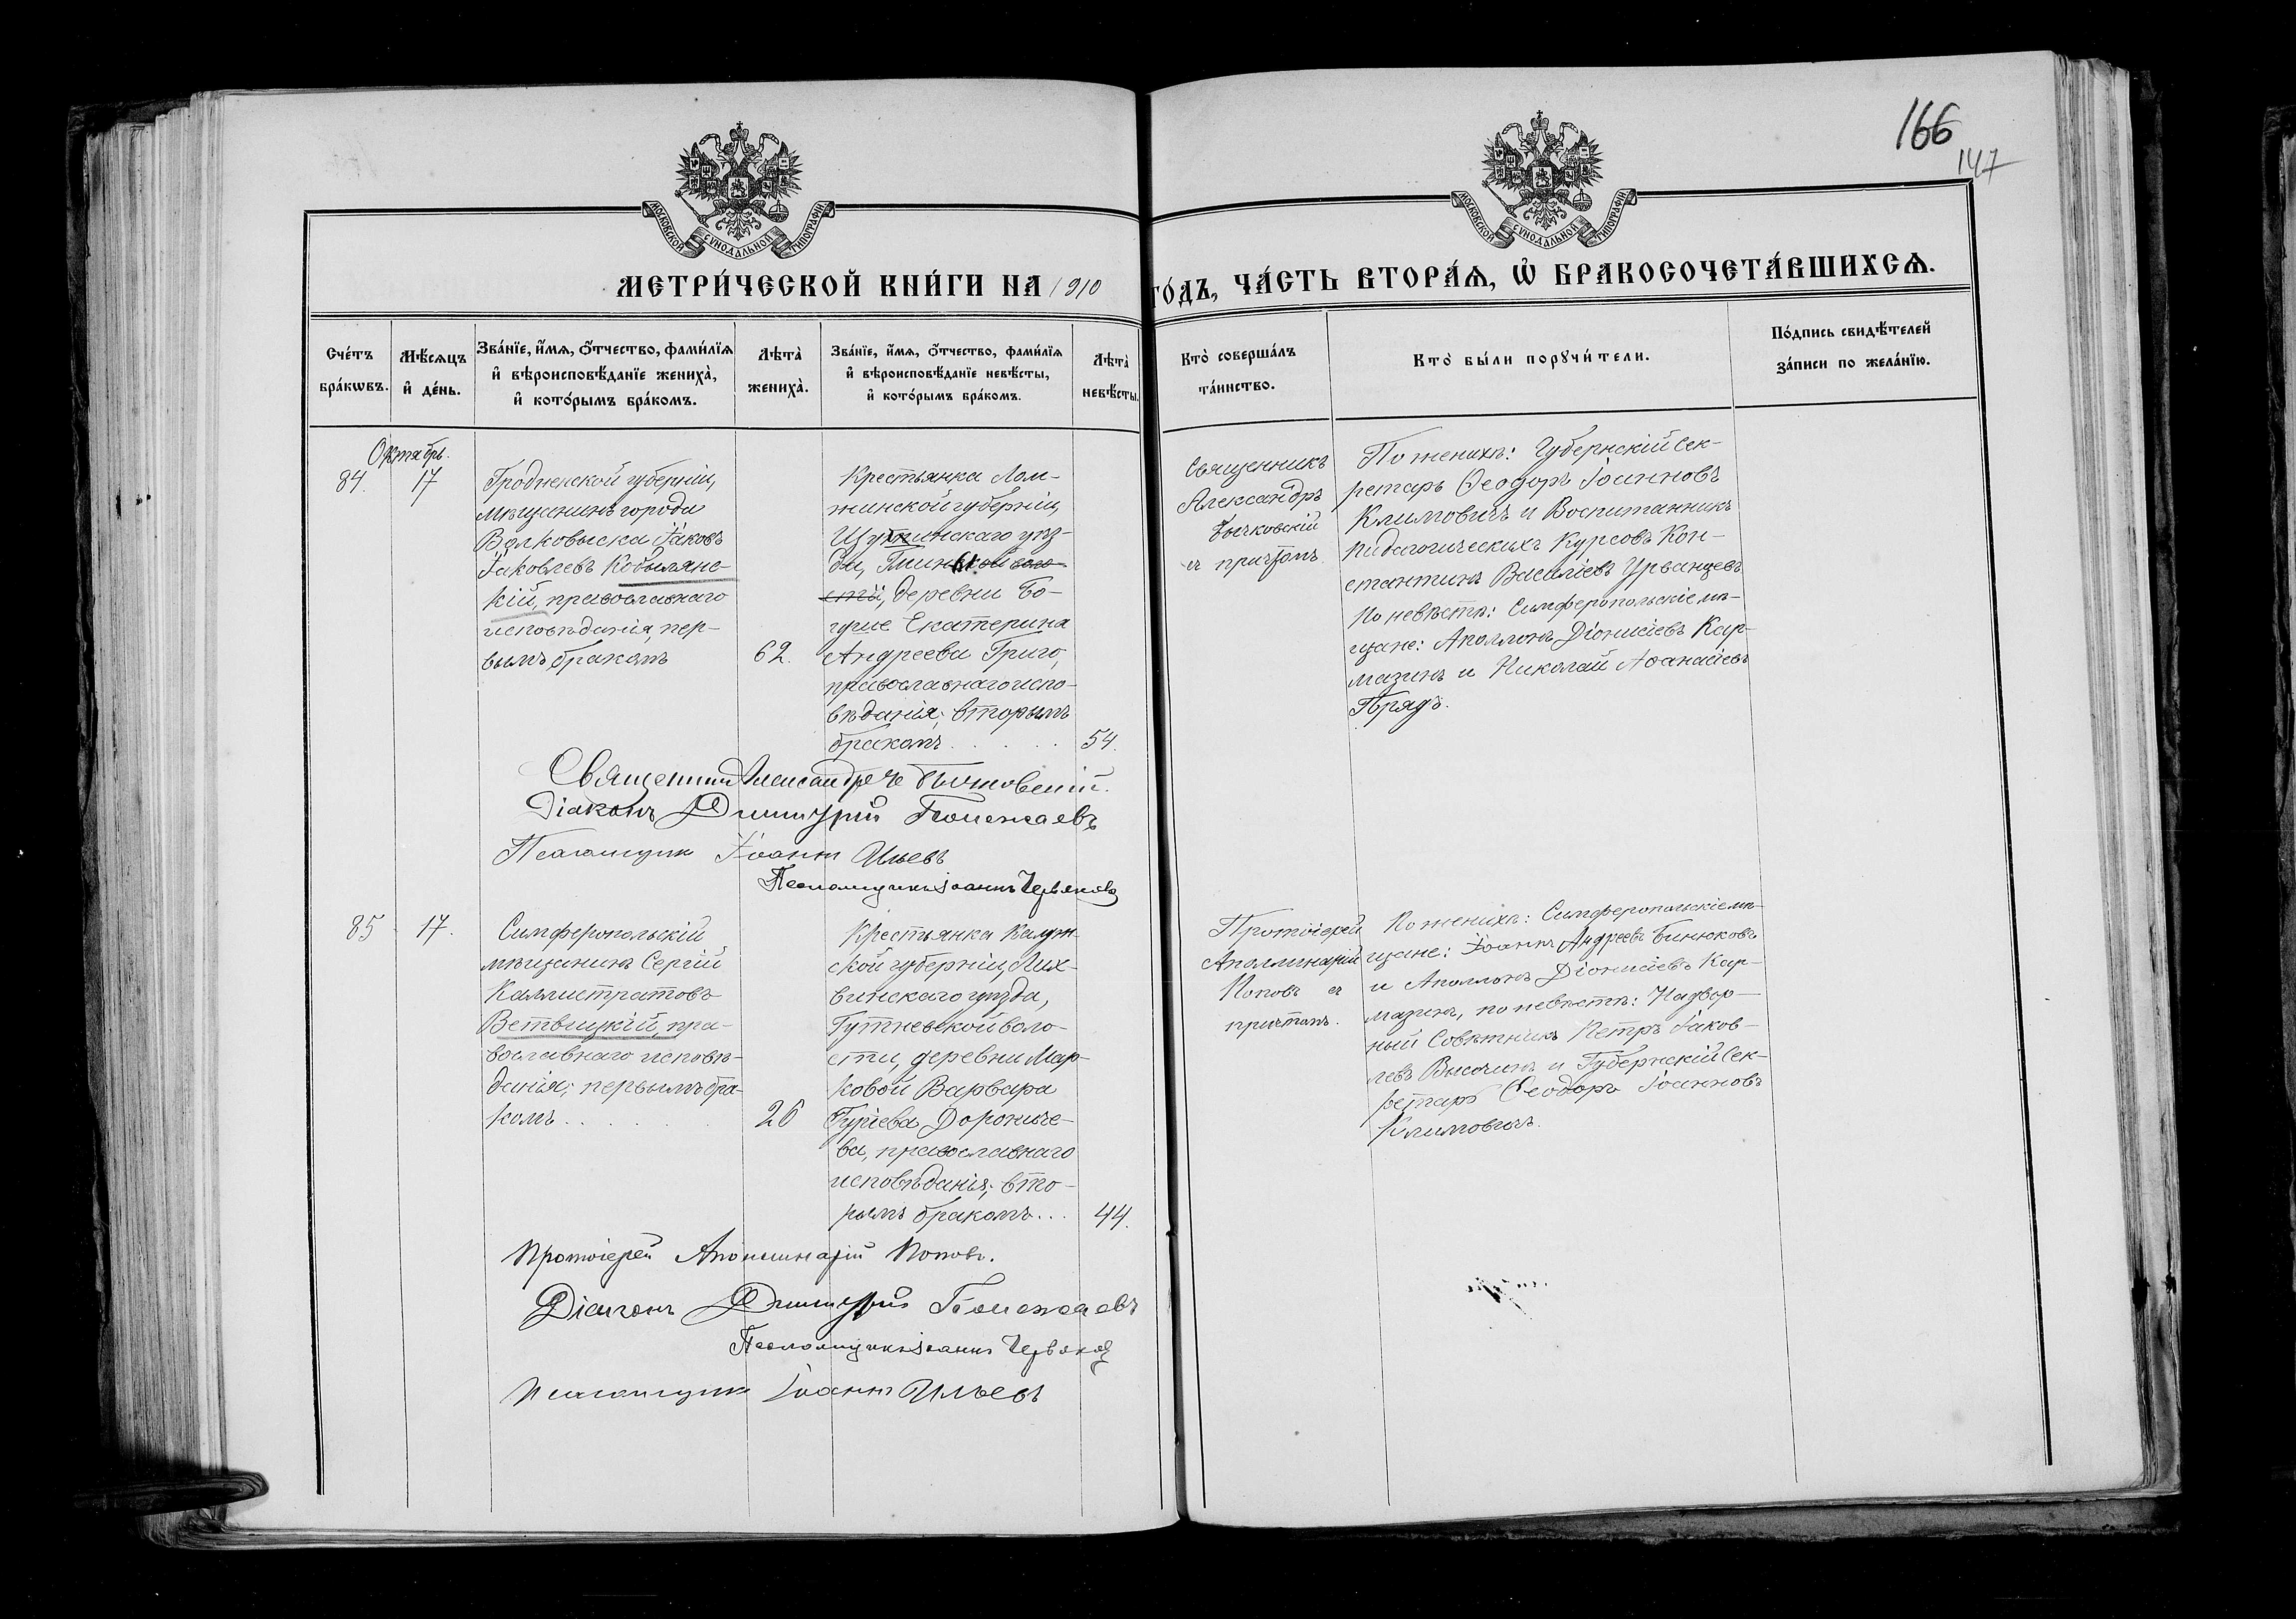 166
147
МОСКОВСКОЙ СѴНОДАЛЬНОЙ ТИПОГРАФІИ
МОСКОВСКОЙ СѴНОДАЛЬНОЙ ТИПОГРАФІИ
МЕТРИ́ЧЕСКОЙ КНИ́ГИ НА 1910
ГО́ДЪ, ЧА́СТЬ ВТОРА́Ѧ, Ѽ БРАКОСОЧЕТА́ВШИХСѦ.
Сче́тъ
бра́кѡвъ.
Мѣ́сѧцъ
и҆ де́нь.
Зва́нїе, и҆́мѧ, ѻ҆́тчество, фами́лїѧ
и҆ вѣроисповѣ́данїе жениха̀,
и҆ кото́рымъ бра́комъ.
Лѣта̀
жениха̀.
Зва́нїе, и҆́мѧ, ѻ҆́тчество, фами́лїѧ
и҆ вѣроисповѣ́данїе невѣ́сты,
и҆ кото́рымъ бра́комъ.
Лѣта̀
невѣ́сты.
Кто̀ соверша́лъ
та́инство.
Кто̀ бы́ли порꙋчи́тели.
По́дпись свидѣ́телей
за́писи по жела́нїю.
Октябрь.
84. 17
Гродненской губерніи,
мѣщанинъ города
Волковыска Іаковъ
Іаковлевъ Кобылянс-
кій, православнаго
исповѣданія, пер-
вымъ бракомъ
62.
Крестьянка Лом-
жинской губерніи,
Щучинскаго уѣз-
да,
деревни Бо-
гуше Екатерина
Андреева Григо,
православнаго испо-
вѣданія; вторымъ
бракомъ . . . .
54.
Священникъ
Александръ
съ причтомъ
По женихѣ: Губернскій Сек-
ретарь Ѳеодоръ Іоанновъ
Климовичъ и Воспитанникъ
Педагогическихъ Курсовъ Кон-
стантинъ Василіевъ Урванцевъ
По невѣстѣ: Симферопольскіе мѣ-
щане: Аполлонъ Діонисіевъ Кар-
мазинъ и Николай Аѳанасіевъ
Священникъ Александръ
Діаконъ Димитрій
Псаломщикъ Іоаннъ Ильевъ
Псаломщикъ Іоаннъ Червяковъ
85. 17.
Симферопольскій
мѣщанинъ Сергій
Каллистратовъ
Ветвицкій, пра-
вославнаго исповѣ-
данія; первымъ бра-
комъ . . . .
26
Крестьянка Калуж-
ской губерніи, Лих-
винскаго уѣзда,
воло-
сти, деревни Мар-
ковой Варвара
Гуріева Дорониче-
ва, православнаго
исповѣданія; вто-
рымъ бракомъ...
44.
Протоіерей
Аполлинарій
Поповъ съ
причтомъ.
По женихѣ: Симферопольскіе мѣ-
щане: Іоаннъ Андреевъ Бинюковъ
и Аполлонъ Діонисіевъ Кар-
мазинъ, по невѣстѣ: Надвор-
ный Совѣтникъ Петръ Іаков-
левъ Высочинъ и Губернскій Сек-
ретарь Ѳеодоръ Іоанновъ
Климовичъ.
Протоіерей Аполлинарій Поповъ.
Діаконъ Димитрій
Псаломщикъ Іоаннъ Червяковъ
Псаломщикъ Іоаннъ Ильевъ